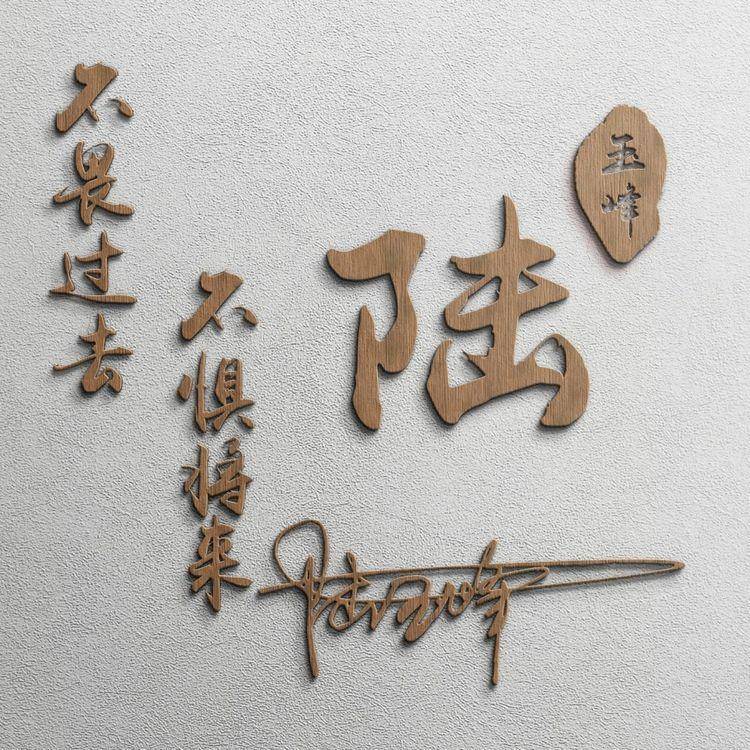 不畏过去
不惧将来
陆
玉峰
陆玉峰